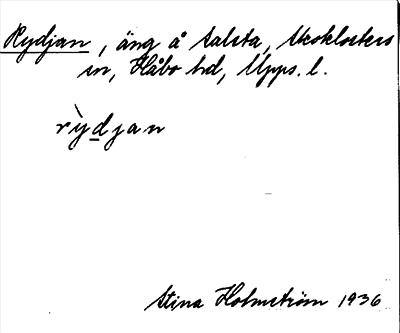 Rydjan, äng å Salsta, Skoklosters
sn, Håbo hd, Upps. l.
rỳdjan
Stina Holmström 1936